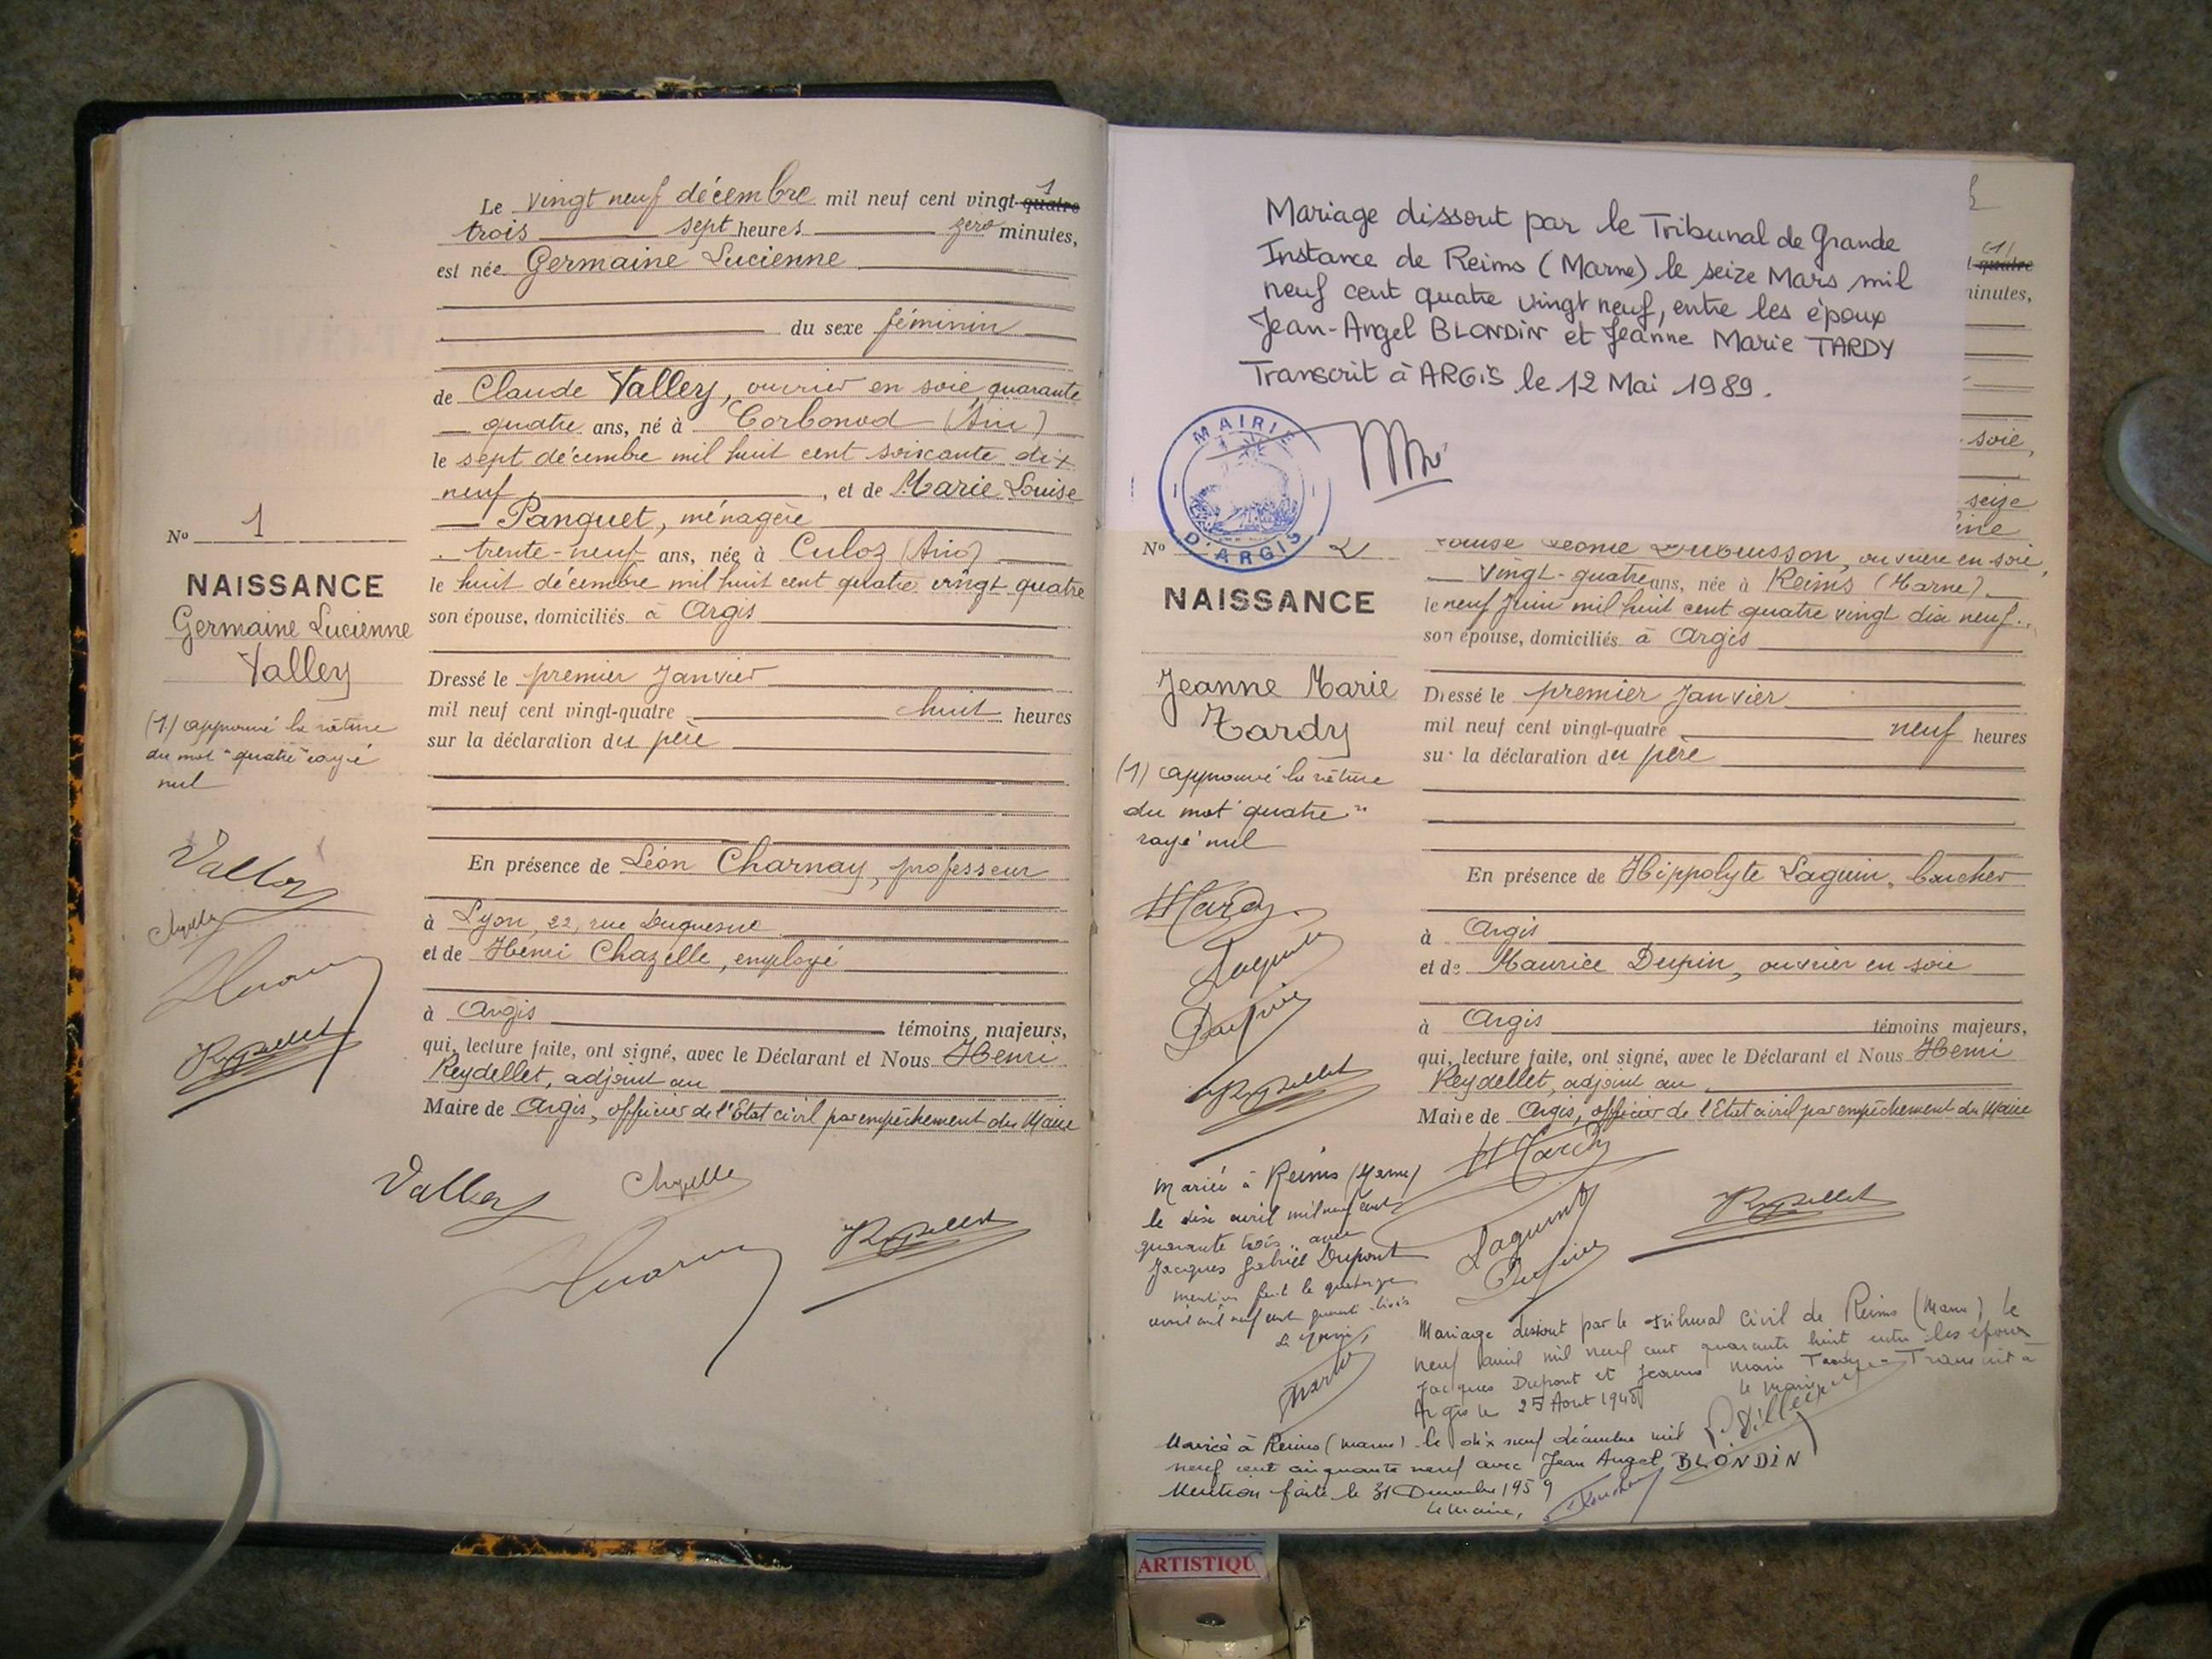 Le vingt neuf décembre mil neuf cent vingt-quatre 1
trois sept heures zéro minutes,
est née Germaine Lucienne
du sexe féminin
de Claude Valley, ouvrier en soie, quarante
quatre ans, né à Corbonod (Ain)
le sept décembre mil huit cent soixante dix
neuf, et de Marie Louise
Panguet, ménagère
trente-neuf ans, née à Culoz (Ain)
le huit décembre mil huit cent quatre vingt quatre
son épouse, domiciliés à Argis
Dressé le premier Janvier
mil neuf cent vingt-quatre huit heures
sur la déclaration du père
En présence de Léon Charnay, professeur
à Lyon, 22, rue Duquesne
et de Henri Chazelle, employé
à Argis témoins majeurs,
qui, lecture faite, ont signé, avec le Déclarant et Nous Henri
Reydellet, adjoint au
Maire de Argis, officier de l'Etat civil par empêchement du Maire
No 1
NAISSANCE
Germaine Lucienne
Valley
(1) approuvé la rature
du mot "quatre" rayé
nul
Valley
Chazelle
Reydellet
Valley Chazelle
Reydellet
Mariage dissout par le Tribunal de Grande
Instance de Reims (Marne) le seize Mars mil
neuf cent quatre vingt neuf, entre les époux
Jean-Angel BLONDIN et Jeanne Marie TARDY
Transcrit à ARGIS le 12 Mai 1989.
MAIRIE
D'ARGIS
quatre
minutes,
soie,
seize
No 2
Louise Léonie Dubuisson, ouvrière en soie,
vingt-quatre ans, née à Reims (Marne)
le neuf Juin mil huit cent quatre vingt dix neuf
son épouse, domiciliés à Argis
Dressé le premier Janvier
mil neuf cent vingt-quatre neuf heures
sur la déclaration du père
En présence de Hippolyte Laguin, boucher
à Argis
et de Maurice Dupin, ouvrier en soie
à Argis témoins majeurs,
qui, lecture faite, ont signé, avec le Déclarant et Nous Henri
Reydellet, adjoint au
Maire de Argis, officier de l'Etat civil par empêchement du Maire
NAISSANCE
Jeanne Marie
Tardy
(1) approuvé la rature
du mot "quatre"
rayé nul
Tardy
Laguin
Dupin
Reydellet
Tardy
Laguin
Dupin
Reydellet
Mariée à Reims (Marne)
le dix avril mil neuf cent
quarante trois avec
Jacques Gabriel Dupont
mention faite le quatorze
avril mil neuf cent quarante trois
Le Maire,
Mariage dissout par le tribunal Civil de Reims (Marne) le
neuf avril mil neuf cent quarante huit entre les époux
Jacques Dupont et Jeanne Marie Tardy - Transcrit à
Argis le 25 Aout 1948
le Maire
Mariée à Reims (Marne) le dix neuf décembre mil
neuf cent cinquante neuf avec Jean Angel BLONDIN
Mention faite le 31 Decembre 1959
Le Maire,
ARTISTIQU